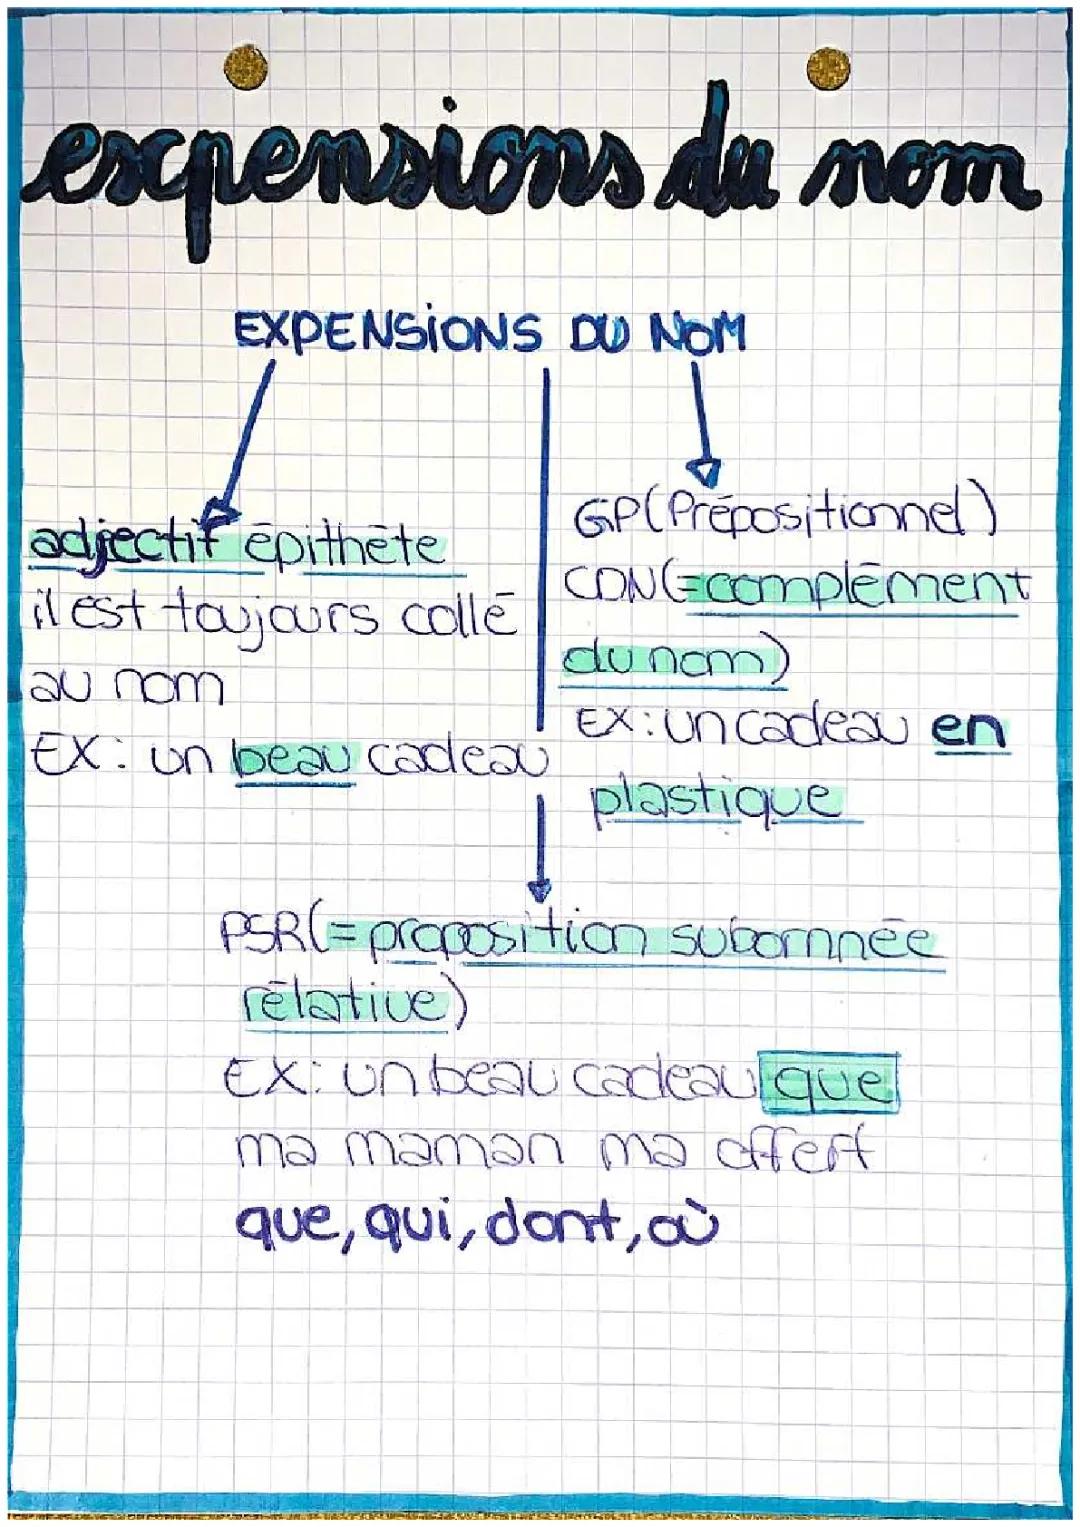 expensions du nom
EXPENSIONS DU NOM
adjectif épithète
il est toujours collé
au nom
EX: un beau cadeau
GP(Prépositionnel)
CDN(=complément
du nom)
EX: un cadeau en
plastique
PSR(=proposition subornnée
rélative)
EX: un beau cadeau que
ma maman ma offert
que, qui, dont, où